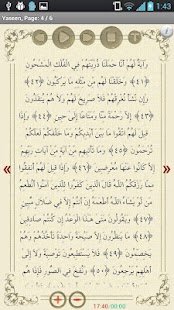 1:43
Yaseen, Page: 4 / 6
وَءَايَةٌ لَهُمْ أَنَّا حَمَلْنَا ذُرِّيَّتَهُمْ فِي الْفُلْكِ الْمَشْحُونِ
﴿٤١﴾ وَخَلَقْنَا لَهُمْ مِنْ مِثْلِهِ مَا يَرْكَبُونَ ﴿٤٢﴾
وَإِنْ نَشَأْ نُغْرِقْهُمْ فَلَا صَرِيخَ لَهُمْ وَلَا هُمْ يُنْقَذُونَ
﴿٤٣﴾ إِلَّا رَحْمَةً مِنَّا وَمَتَاعًا إِلَى حِينٍ ﴿٤٤﴾ وَإِذَا قِيلَ
لَهُمُ اتَّقُوا مَا بَيْنَ أَيْدِيكُمْ وَمَا خَلْفَكُمْ لَعَلَّكُمْ تُرْحَمُونَ
﴿٤٥﴾ وَمَا تَأْتِيهِمْ مِنْ ءَايَةٍ مِنْ ءَايَاتِ رَبِّهِمْ
إِلَّا كَانُوا عَنْهَا مُعْرِضِينَ ﴿٤٦﴾ وَإِذَا قِيلَ لَهُمْ أَنْفِقُوا
مِمَّا رَزَقَكُمُ اللَّهُ قَالَ الَّذِينَ كَفَرُوا لِلَّذِينَ ءَامَنُوا
أَنُطْعِمُ مَنْ لَوْ يَشَاءُ اللَّهُ أَطْعَمَهُ إِنْ أَنْتُمْ إِلَّا فِي ضَلَالٍ
مُبِينٍ ﴿٤٧﴾ وَيَقُولُونَ مَتَى هَذَا الْوَعْدُ إِنْ كُنْتُمْ صَادِقِينَ
﴿٤٨﴾ مَا يَنْظُرُونَ إِلَّا صَيْحَةً وَاحِدَةً تَأْخُذُهُمْ وَهُمْ
يَخِصِّمُونَ ﴿٤٩﴾ فَلَا يَسْتَطِيعُونَ تَوْصِيَةً وَلَا إِلَى
أَهْلِهِمْ يَرْجِعُونَ ﴿٥٠﴾ وَنُفِخَ فِي الصُّورِ فَإِذَا هُمْ
17:40
00:00